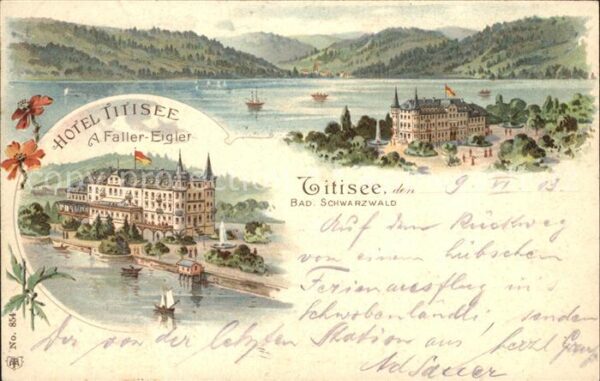 HOTEL TITISEE
A Faller-Eigler
Titisee, den 9. VI 03.
BAD. SCHWARZWALD
Auf dem Rückweg
von einem hübschen
Ferienausflug in's
Schwobenländli, senden
Der von der letzten Station aus herzl Gruß
Ad Sauer
No. 854